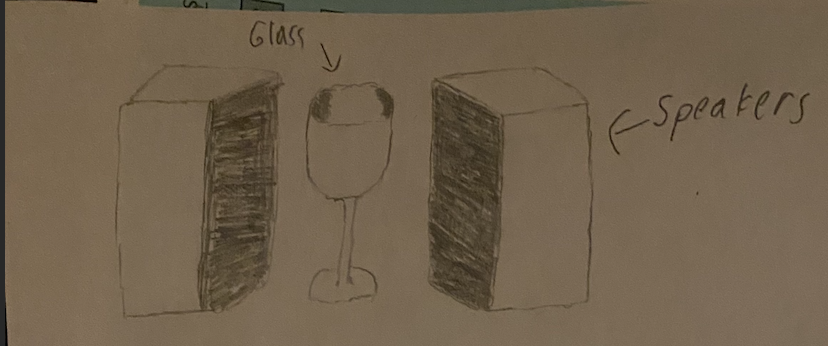 Glass
Speakers